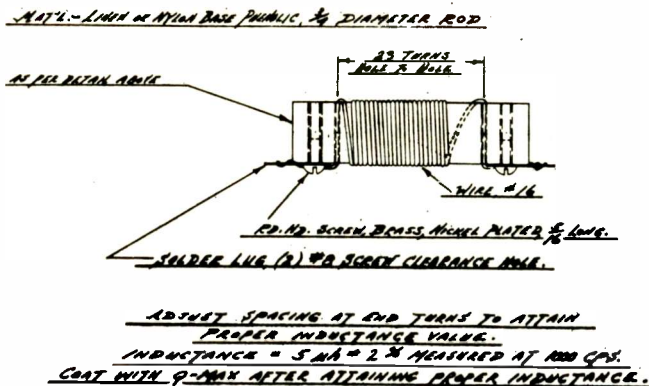 MAT'L.- LINEN OR NYLON BASE PHENOLIC, 3/4 DIAMETER ROD
23 TURNS
HOLE TO HOLE
AS PER DETAIL ABOVE
WIRE #16
RD. HD. SCREW, BRASS, NICKEL PLATED, 5/16 LONG.
SOLDER LUG, (2) #8 SCREW CLEARANCE HOLE.
ADJUST SPACING AT END TURNS TO ATTAIN
PROPER INDUCTANCE VALUE.
INDUCTANCE = 5 µh ± 2% MEASURED AT 1000 CPS.
COAT WITH Q-MAX AFTER ATTAINING PROPER INDUCTANCE.